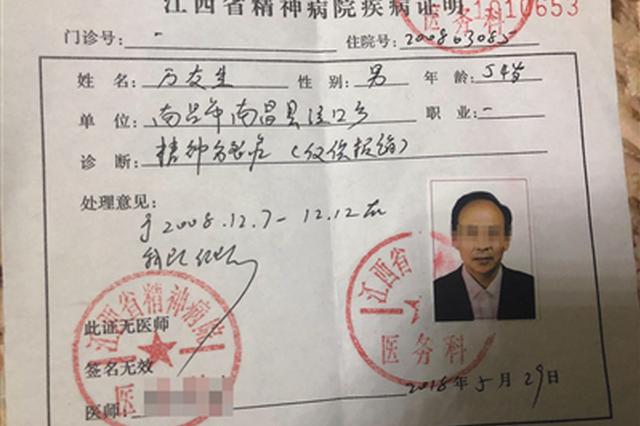 江西省精神病院疾病证明
1010653
医务科
门诊号: - 住院号: 200803085
姓名: 万友生 性别: 男 年龄: 54岁
单位: 南昌市南昌县泾口乡 职业: -
诊断: 精神分裂症（仅供报销）
处理意见:
于2008.12.7-12.12在
我院
江西省
医务科
江西省精神病院
此证无医师
签名无效
医师:
2018年5月29日